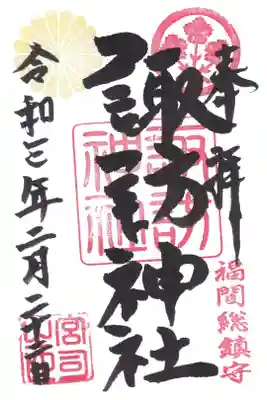 奉拝
福間総鎮守
諏訪神社
諏訪神社
令和三年二月二十
宮司之印